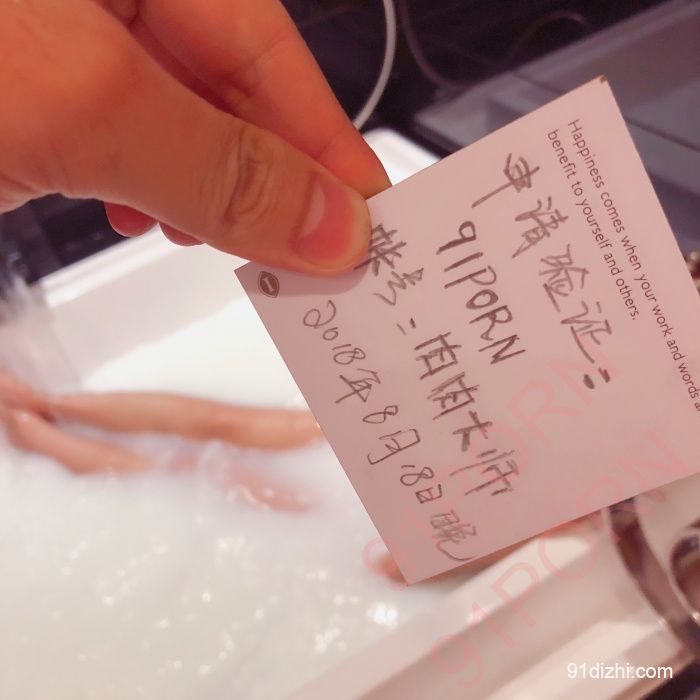 Happiness comes when your work and words a
benefit to yourself and others.
申请验证：
91PORN
帐号：肉肉大师
2018年8月18日晚
91PORN
91PORN
91dizhi.com